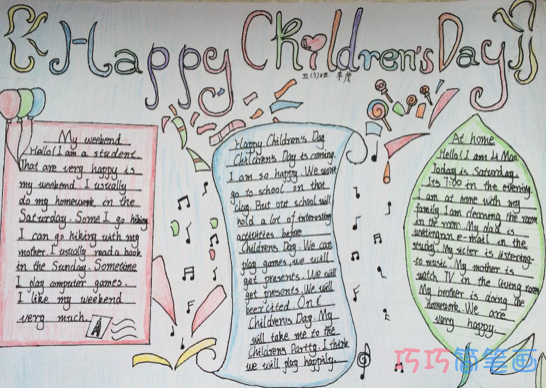 Happy Children's Day
My weekend
Hello! I am a student.
That are very happy is
my weekend. I usually
do my homework in the
Saturday. Some I go hiking
I can go hiking with my
mother. I usually read a book
in the Sunday. Sometime
I play computer games.
I like my weekend
very much.
Happy Children's Day
Children's Day is coming.
I am so happy. We
go to school on that
day. But our school will
hold a lot of interesting
activities before
Children's Day. We can
play games, we will
get presents. We will
get presents. We will
On
Children's Day. My
will take me to the
Children's Party. I think
we will play happily.
At home
Hello! I am Li Mao
Today is Saturday.
It's 7:00 in the evening.
I am at home with my
family. I am cleaning the room
in the room. My dad is
e-mail in the
study. My sister is listening
to music. My mother is
watch TV in the living room
My brother is doing the
homework. We are
very happy.
巧巧简笔画